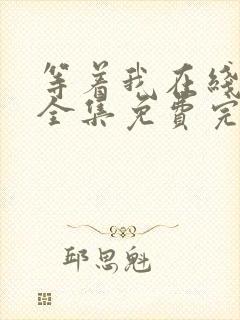 等着我在线
全集免费完
邱思魁